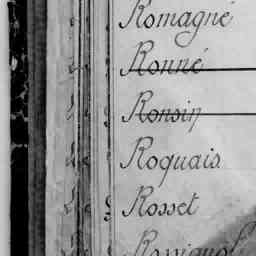 Romagné
Ronné
Ronsin
Roquais
Rosset
Rossignol